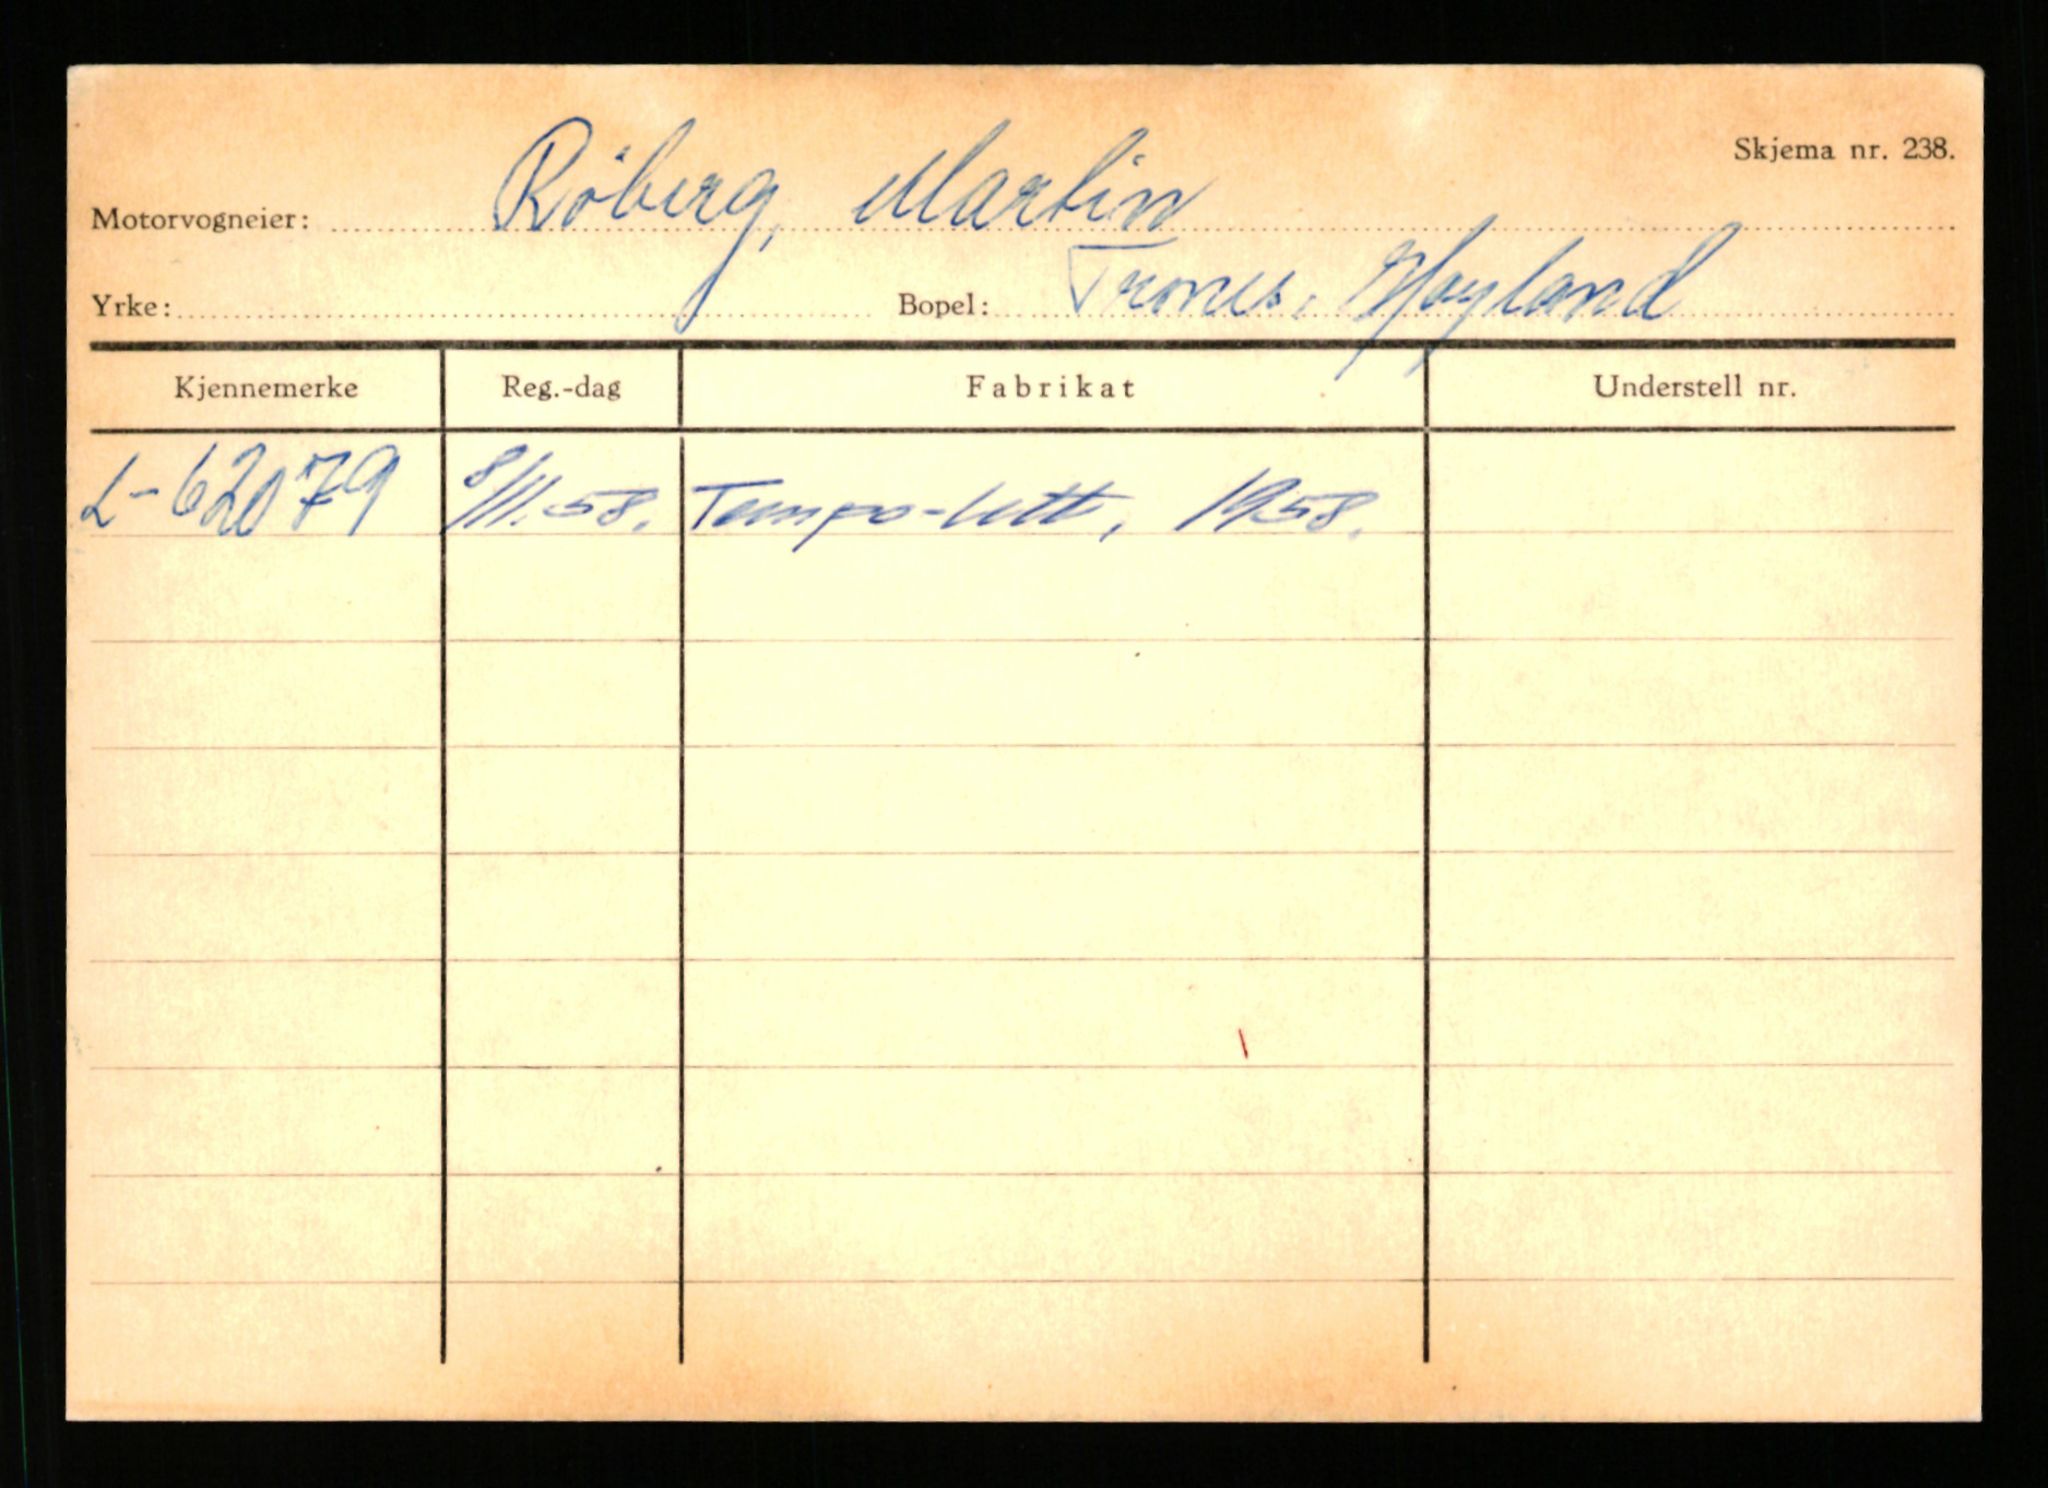 Skjema nr. 238.
Motorvogneier: Röberg, Martin
Yrke: Bopel: Trones, Høyland
Kjennemerke Reg.-dag Fabrikat Understell nr.
L-62079 8/11.58. Tempo-lett, 1958.